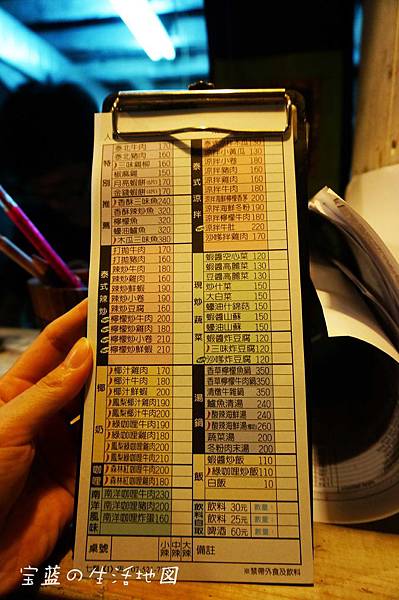 特別推薦
泰北牛肉 170
泰北豬肉 160
三味雞柳 160
椒麻雞 150
月亮蝦餅
金錢蝦餅
香酥三色魚 240
香酥辣炒魚
檸檬魚
蠔油鱸魚
木瓜三味魚 380
泰式辣炒
打拋牛肉 170
打拋豬肉 160
辣炒牛肉 180
辣炒雞肉 160
辣炒鮮蝦 190
辣炒小卷 190
辣炒豆腐 160
檸檬炒牛肉 200
檸檬炒雞肉 190
檸檬炒小卷 210
檸檬炒鮮蝦 210
椰奶
椰汁雞肉 170
椰汁牛肉 180
椰汁鮮蝦 200
鳳梨椰汁雞肉 190
鳳梨椰汁牛肉 200
綠咖哩牛肉 190
綠咖哩雞肉 180
鳳梨咖哩雞肉 200
鳳梨咖哩牛肉 210
咖哩
森林紅咖哩牛肉 190
森林紅咖哩雞肉 180
南洋風味
南洋咖哩牛肉 230
南洋咖哩豬肉 200
南洋咖哩炸蛋 160
桌號
小辣 中辣 大辣
泰式涼拌
涼拌小黃瓜 130
涼拌小卷 190
涼拌豬肉 160
涼拌雞肉 160
涼拌牛肉 180
涼拌海鮮冬粉 190
涼拌檸檬牛肉 180
涼拌牛肚 220
沙嗲拌雞肉 170
現炒蔬菜
蝦醬空心菜 150
蝦醬高麗菜 130
豆醬高麗菜 130
炒什菜 150
大白菜 150
蠔油什錦菇 150
蝦醬山蘇 150
蠔油山蘇 150
蝦醬炸豆腐 130
三味炸豆腐 120
沙嗲炸豆腐 120
湯鍋
香草檸檬魚鍋 350
香草檸檬牛肉鍋 350
清燉牛雜鍋 350
鱸魚清湯 200
酸辣海鮮湯 240
酸辣海鮮湯 260
蔬菜湯 200
冬粉肉末湯 200
飯
蝦醬炒飯 110
綠咖哩炒飯 110
白飯 10
飲料自取
飲料 30元 數量:
飲料 25元 數量:
啤酒 60元 數量:
備註
※禁帶外食及飲料
宝蓝の生活地図